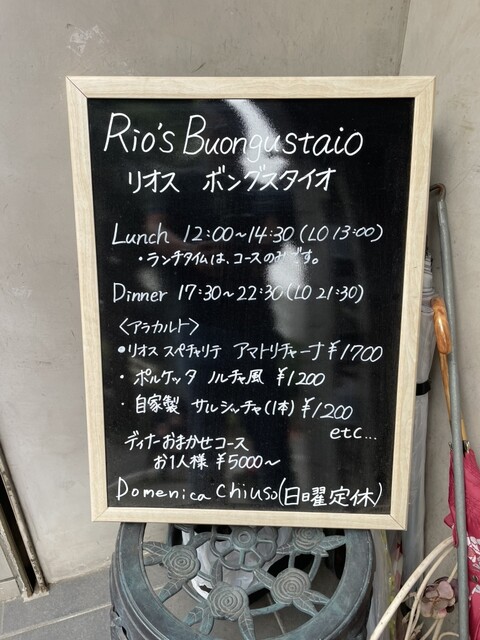 Rio's Buongustaio
リオス ボングスタイオ
Lunch 12:00～14:30 (LO 13:00)
・ランチタイムは、コースのみです。
Dinner 17:30～22:30 (LO 21:30)
〈アラカルト〉
・リオス スペチャリテ アマトリチャーナ ¥1700
・ポルケッタ ノルチャ風 ¥1200
・自家製 サルシッチャ(1本) ¥1200
etc...
ディナーおまかせコース
お1人様 ¥5000～
Domenica Chiuso(日曜定休)